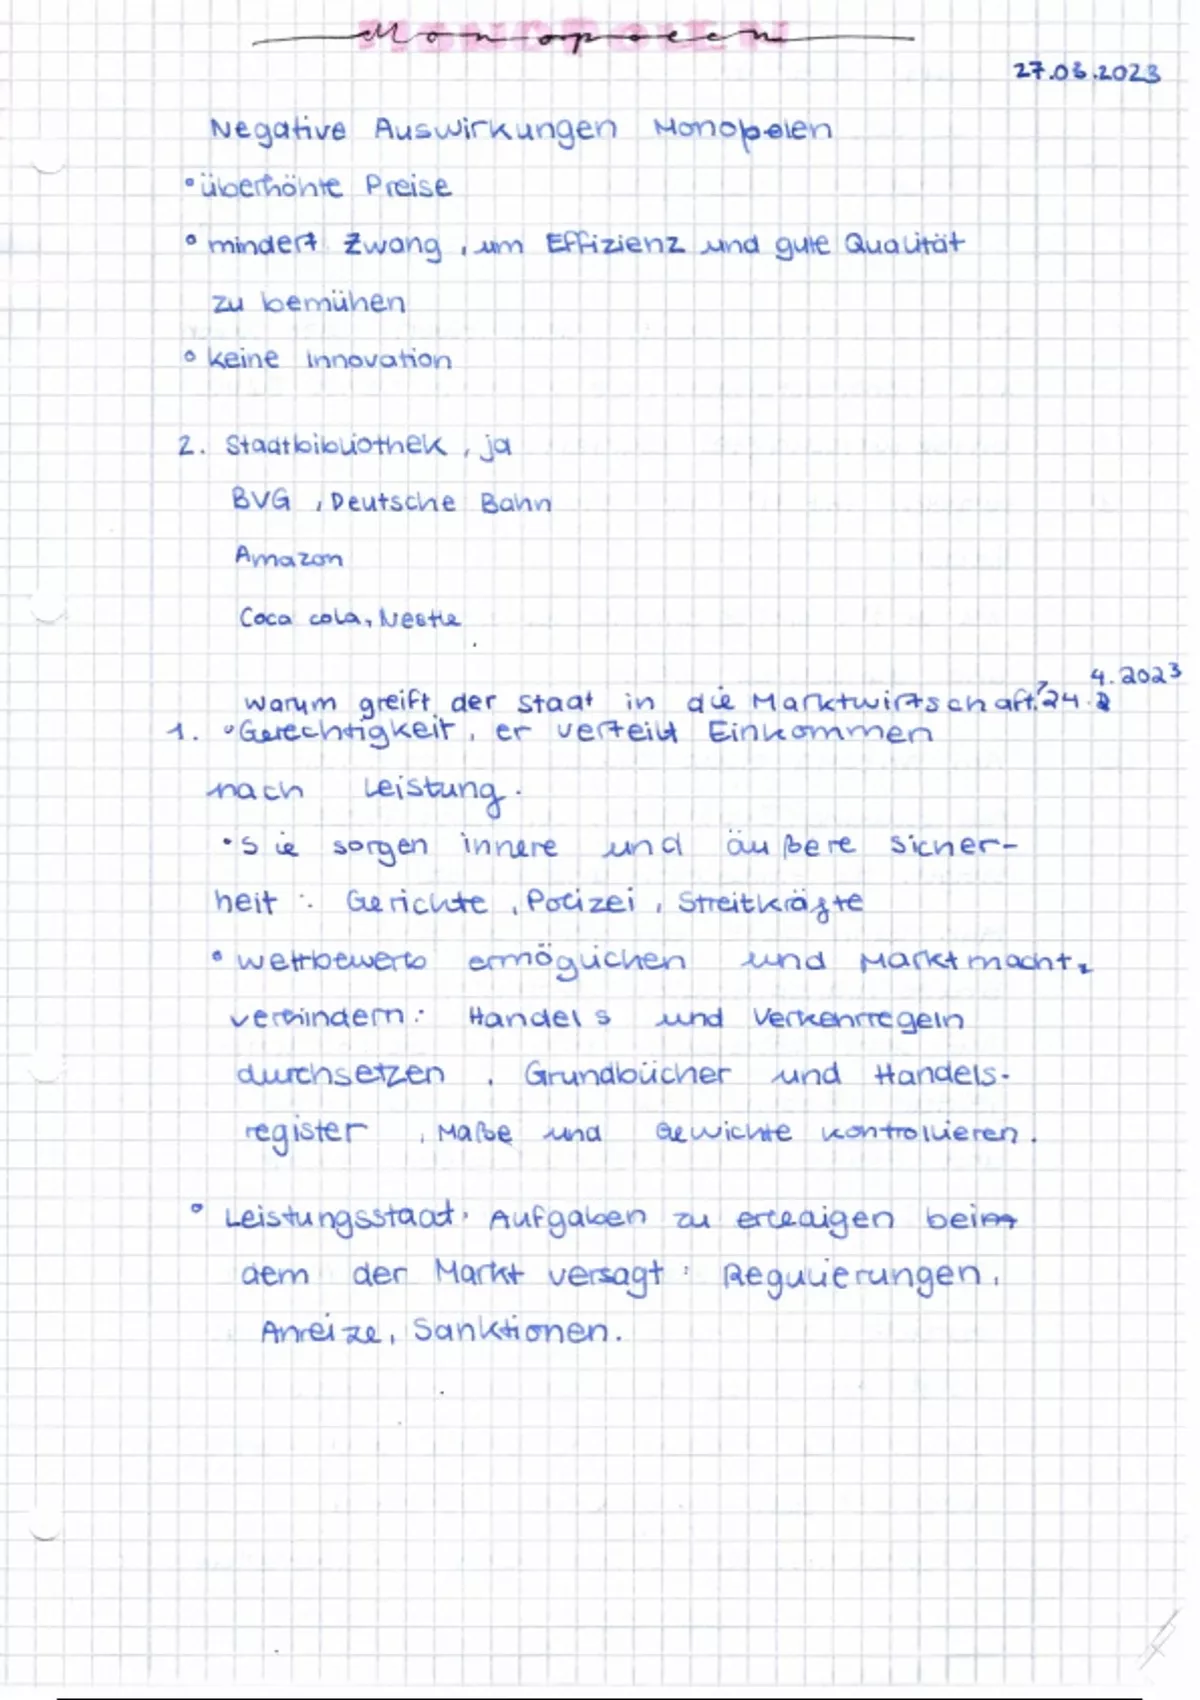 Monopolen
27.03.2023
Negative Auswirkungen Monopolen
• überhöhte Preise
• mindert Zwang, um Effizienz und gute Qualität
zu bemühen
• keine Innovation
2. Stadtbibliothek, ja
BVG, Deutsche Bahn
Amazon
Coca cola, Nestle
4.2023
warum greift der Staat in die Marktwirtschaft? 24.
1. • Gerechtigkeit, er verteilt Einkommen
nach Leistung.
• Sie sorgen innere und äußere Sicher-
heit: Gerichte, Polizei, Streitkräfte
• Wettbewerb ermöglichen und Marktmacht
verhindern: Handels und Verkehrregeln
durchsetzen, Grundbücher und Handels-
register, Maße und Gewichte kontrollieren.
• Leistungsstaat: Aufgaben zu erledigen bei
dem der Markt versagt: Regulierungen,
Anreize, Sanktionen.